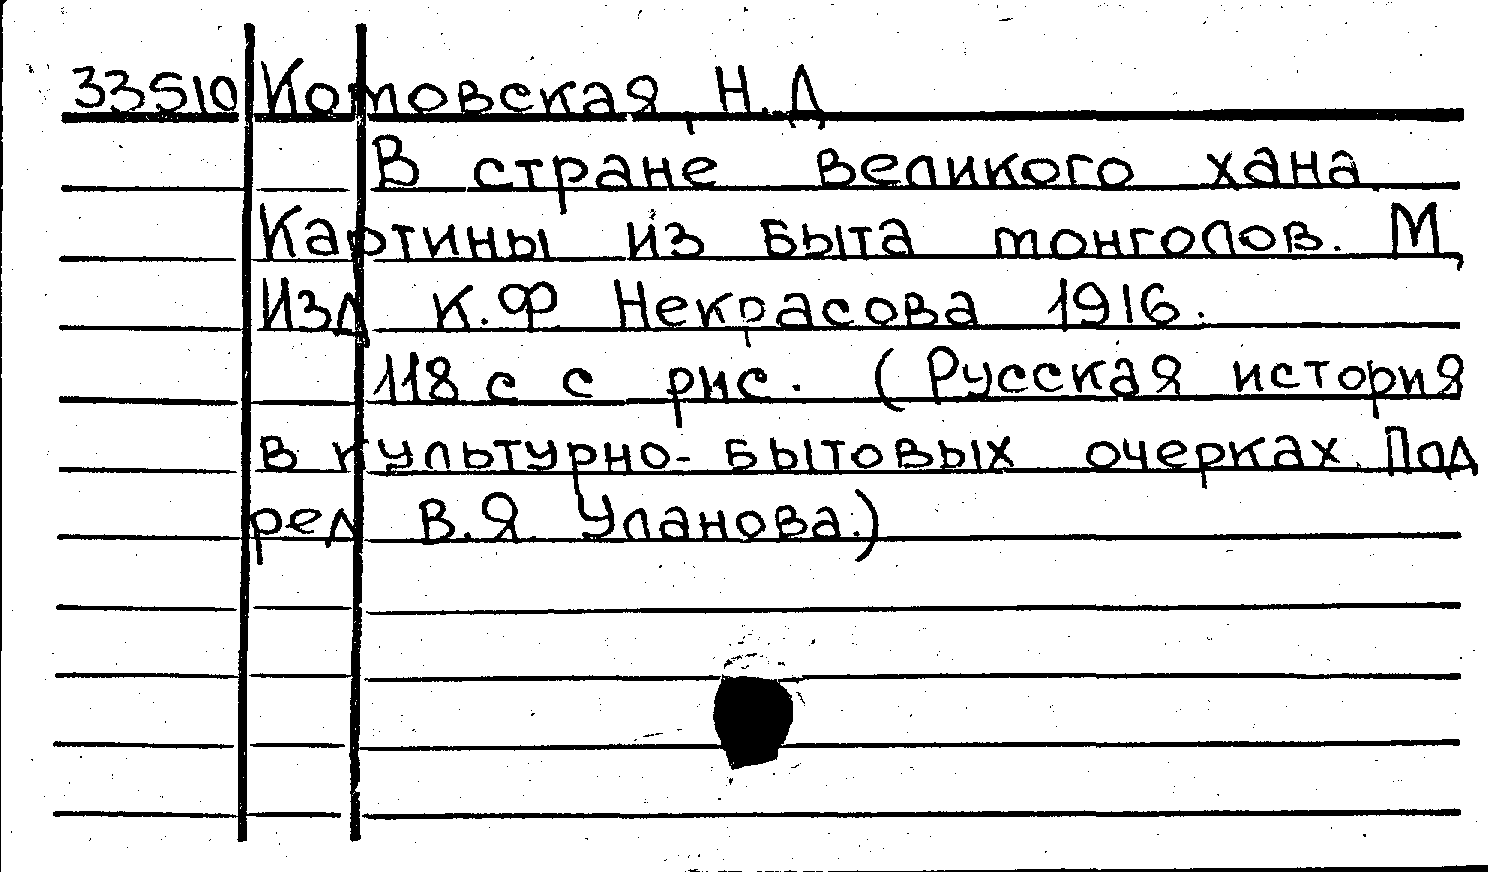 33510 Котовская, Н.Д
В стране великого хана.
Картины из быта монголов. М,
Изд К.Ф Некрасова, 1916.
118 с с рис. (Русская история
в культурно-бытовых очерках. Под
ред В.Я. Уланова.)